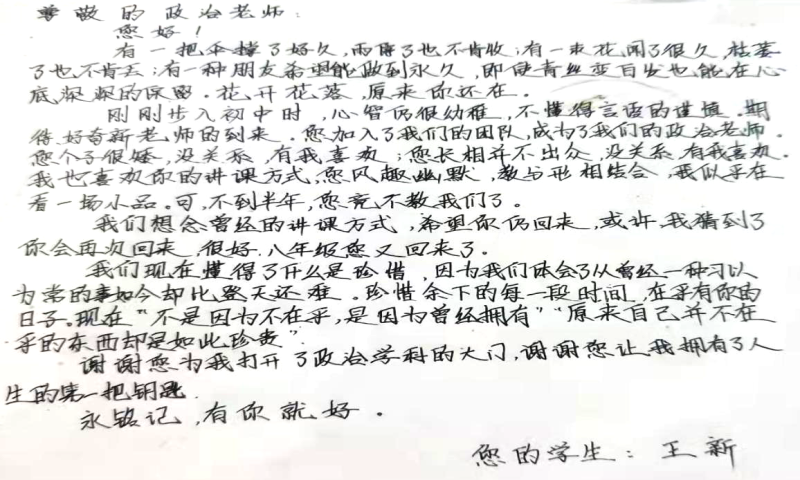 尊敬的政治老师:
您好!
有一把伞撑了好久,雨停了也不肯收;有一束花闻了很久,枯萎
了也不肯丢;有一种朋友希望能做到永久,即使青丝变白发也能在心
底深深的保留。花开花落,原来你还在。
刚刚步入初中时,心智仍很幼稚,不懂得言语的谨慎。期
待、好奇新老师的到来。您加入了我们的团队,成为了我们的政治老师。
您个子很矮,没关系,有我喜欢;您长相并不出众,没关系,有我喜欢。
我也喜欢你的讲课方式,您风趣幽默,数与形相结合,我似乎在
看一场小品。可,不到半年,您竟不教我们了。
我们想念曾经的讲课方式,希望你仍回来,或许,我猜到了
你会再次回来,很好.八年级您又回来了。
我们现在懂得了什么是珍惜,因为我们体会了从曾经一种习以
为常的事如今却比登天还难。珍惜余下的每一段时间,在乎有你的
日子。现在"不是因为不在乎,是因为曾经拥有""原来自己并不在
乎的东西却是如此珍贵"
谢谢您为我打开了政治学科的大门,谢谢您让我拥有了人
生的第一把钥匙.
永铭记,有你就好。
您的学生:王新